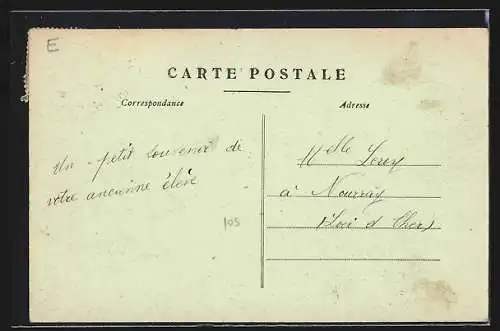 E
CARTE POSTALE
Correspondance
Adresse
Un petit souvenir de
votre ancienne élève
105
Mlle Lorey
à Nourray
(Loir et Cher)